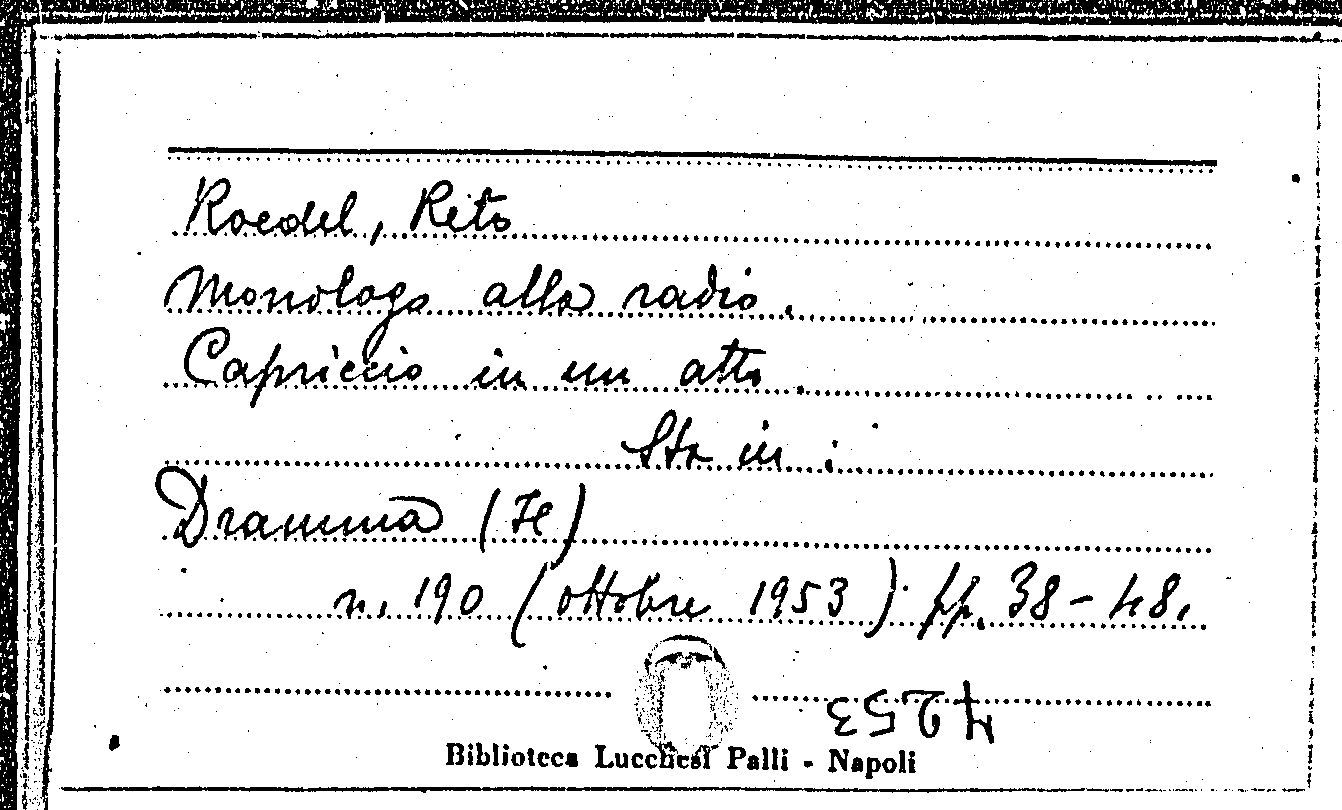 Roedel, Reto
Monologo alla radio.
Capriccio in un atto.
Sta in:
Dramma (Il)
n. 190 (ottobre 1953) pp. 38-48.
4253
Biblioteca Lucchesi Palli - Napoli